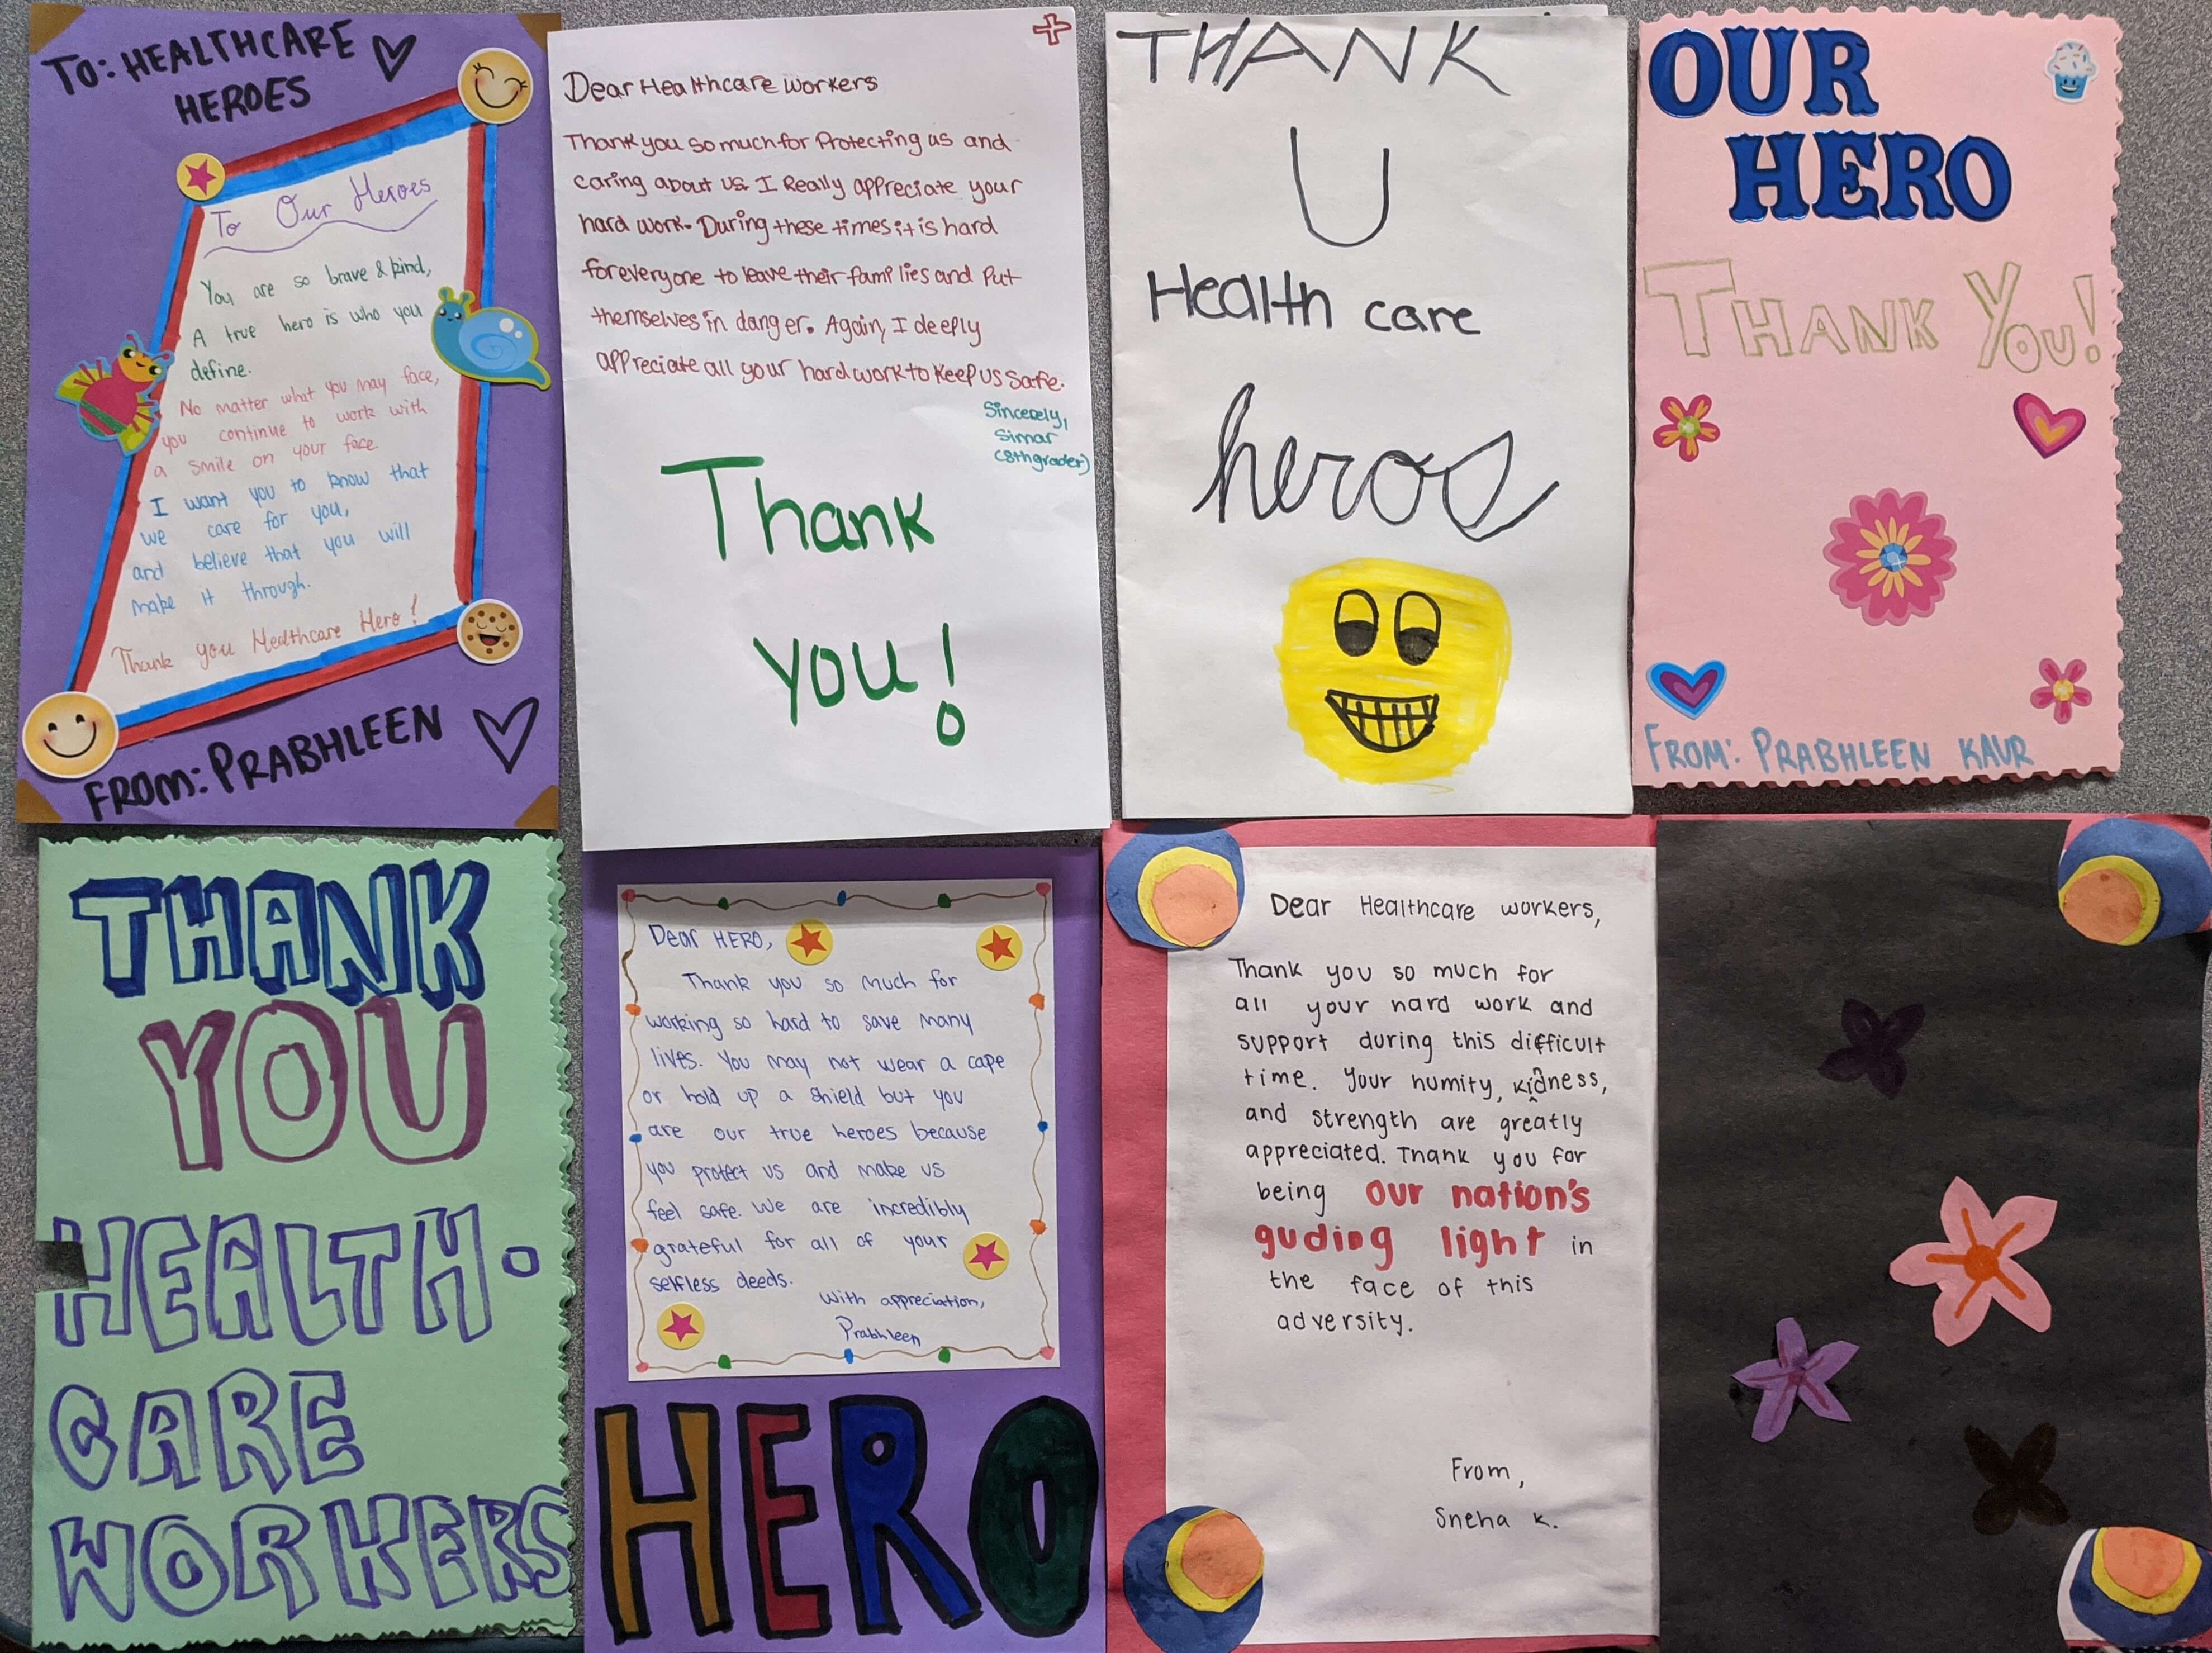 TO: HEALTHCARE
HEROES
To Our Heroes
You are so brave & kind,
A true hero is who you
define.
No matter what you may face,
you continue to work with
a smile on your face.
I want you to know that
we care for you,
and believe that you will
make it through.
Thank you Healthcare Hero!
FROM: PRABHLEEN
Dear Healthcare workers
Thank you so much for Protecting us and
caring about us. I Really appreciate your
hard work. During these times it is hard
for everyone to leave their families and Put
themselves in danger. Again, I deeply
appreciate all your hard work to keep us safe.
Sincerely,
Simar
(8th grader)
Thank
you!
THANK
U
Health care
heros
OUR
HERO
THANK YOU!
FROM: PRABHLEEN KAUR
THANK
YOU
HEALTH-
CARE
WORKERS
Dear HERO,
Thank you so much for
working so hard to save many
lives. You may not wear a cape
or hold up a shield but you
are our true heroes because
you protect us and make us
feel safe. We are incredibly
grateful for all of your
selfless deeds.
With appreciation,
Prabhleen
HERO
Dear Healthcare workers,
Thank you so much for
all your hard work and
support during this difficult
time. Your humity, kidness,
and strength are greatly
appreciated. Thank you for
being our nation's
guding light in
the face of this
adversity.
From,
Sneha K.